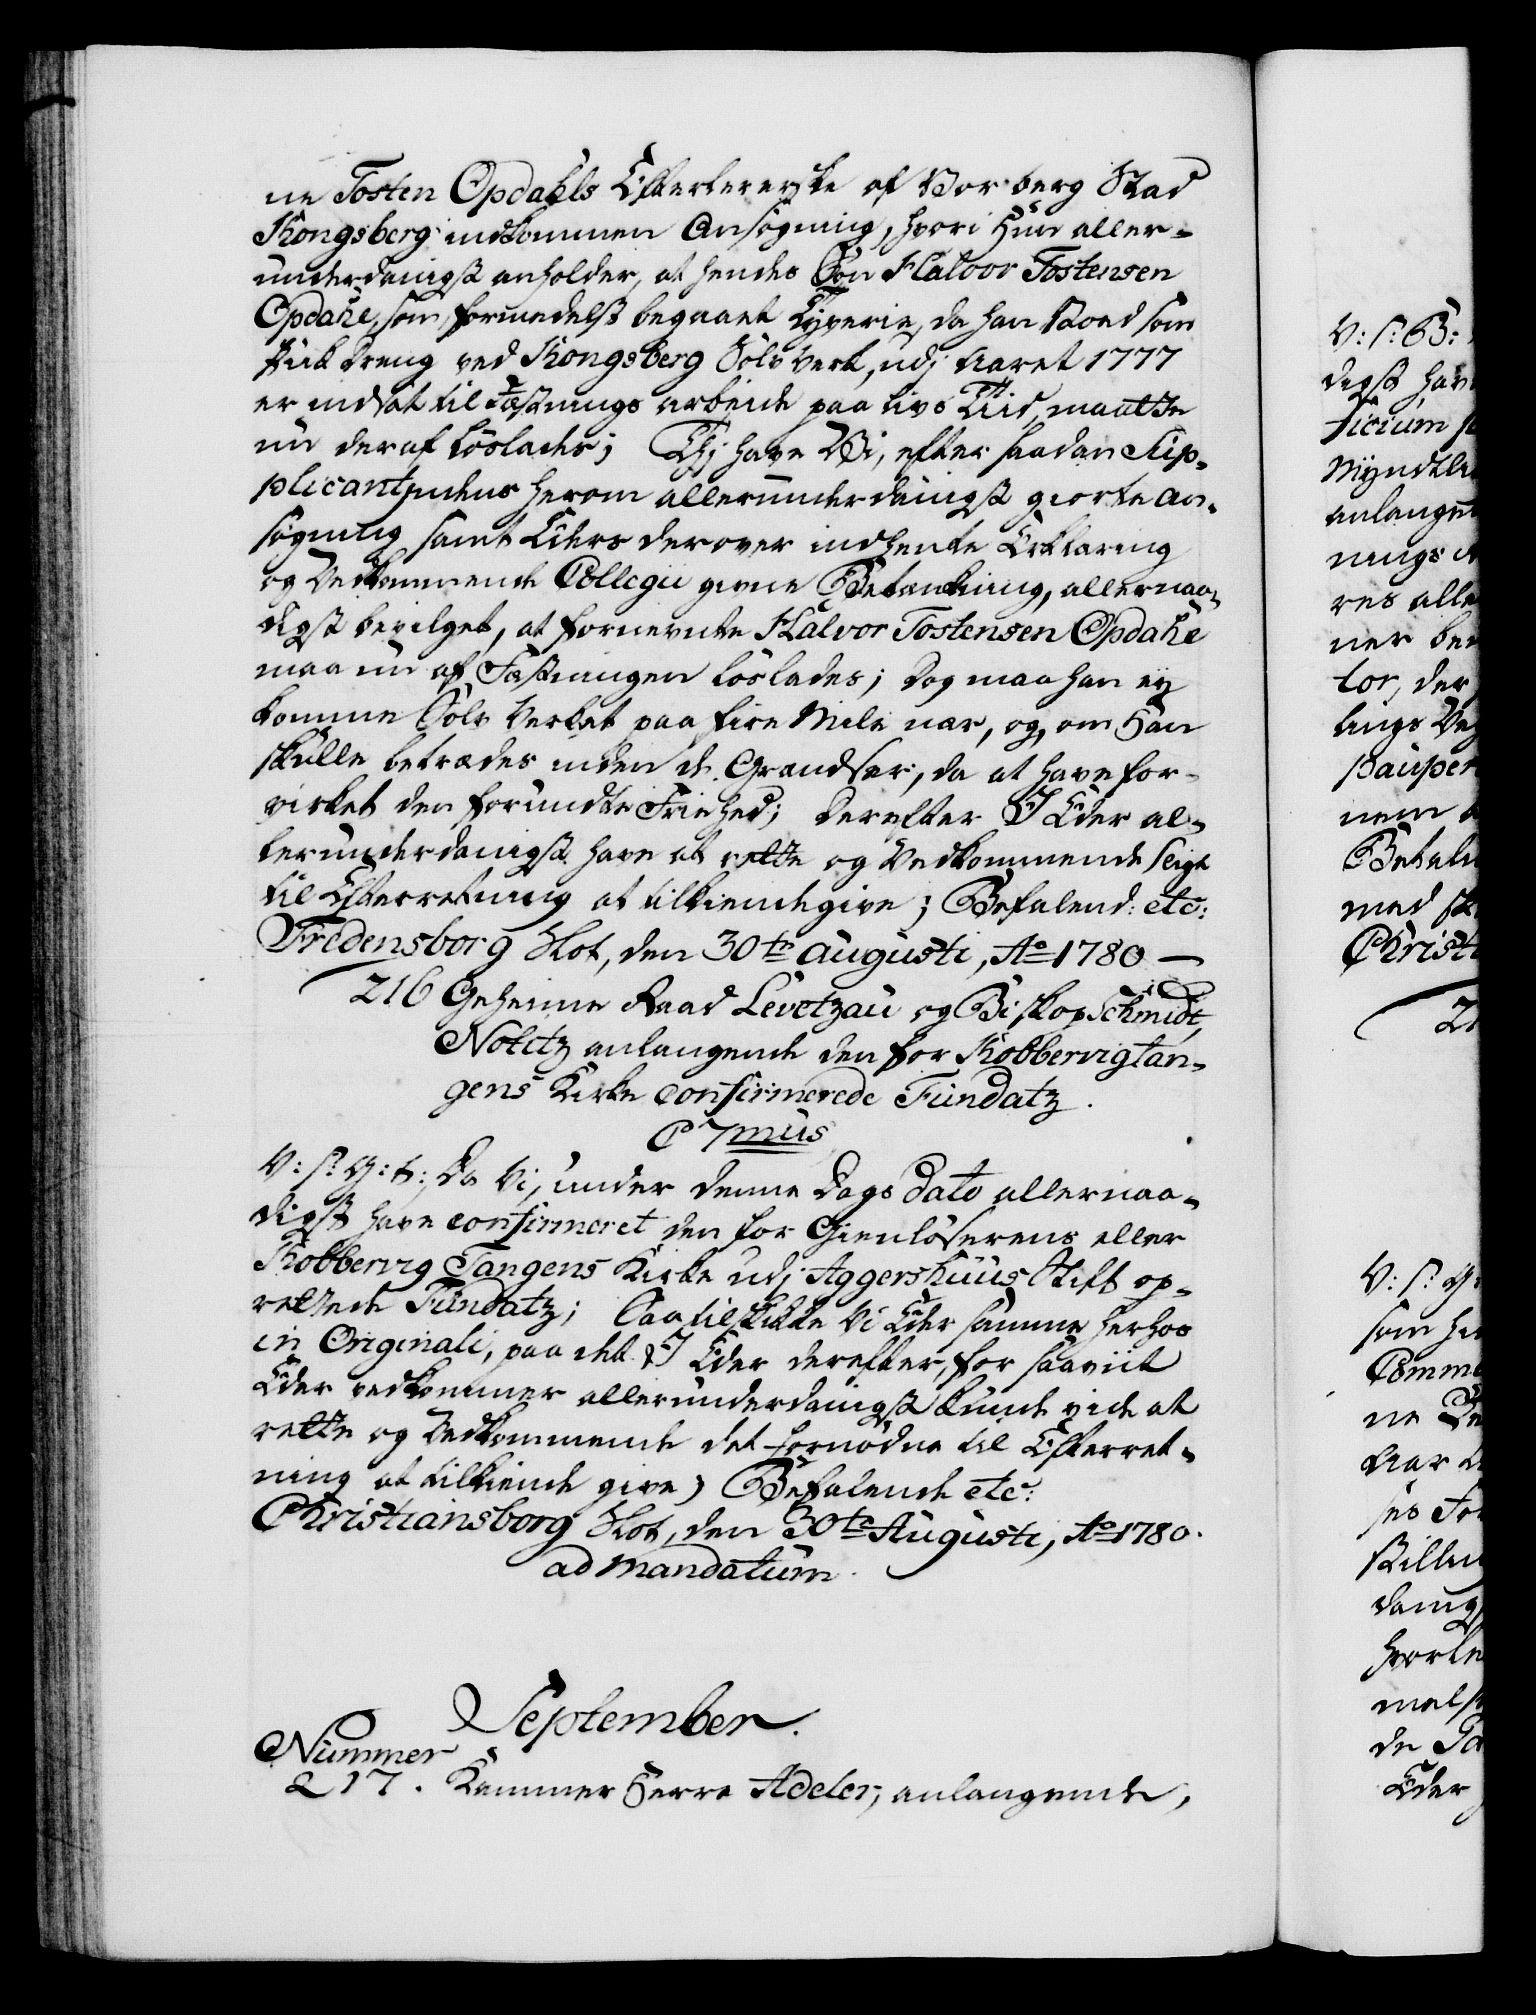 ne Tosten Opdahls Efterleverske af Vor berg Stad
Kongsberg indkommen Ansøgning, hvori Hun aller-
underdanigst anholder, at hendes Søn Halvor Tostensen
Opdahl, som, formedelst begaaet Tyverie, da han stoed som
Puk Dreng ved Kongsberg Sölv Verk, udj Aaret 1777
er indsat til Fæstnings arbeide paa livs Tiid, maatte
nu deraf løslades; Thj have Vi, efter saadan Sup-
plicantjndens herom allerunderdanigst giorte An-
søgning samt Eders derover indhente Erklæring
og Vedkommende Collegii givne Betænkning, allernaa-
digst bevilget, at fornevnte Halvor Tostensen Opdahl
maa nu af Fæstningen løslades; dog maa han ey
komme Sølv Verket paa fire Mile nær, og, om Han
skulle betrædes inden de Grændser, da at have for-
virket den forundte Friehed; Derefter I Eder al-
lerunderdanigst have at rette og Vedkommende Selge
til Efterretning at tilkiendegive; Befalend: etc:
Fredensborg Slot, den 30te Augusti, Ao 1780 —
216 Geheime Raad Levetzau og Biskop Schmidt,
Notitz anlangende den for Kobbervigtan-
gens Kirke confirmerede Fundatz.
C 7mus
V: S: G: t: Da Vi, under denne Dags Dato allernaa-
digst have confirmeret den for Gienløserens eller
Kobbervig Tangens Kirke udj Aggershuus Stift op-
rettede Fundatz; Saa tilskikke Vi Eder samme herhos
in Originali, paa det I Eder derefter, for saaviit
Eder vedkommer allerunderdanigst kunde vide at
rette og Vedkommende det fornødne til Efterret-
ning at tilkiende give; Befalende etc:
Christiansborg Slot, den 30te Augusti, Ao 1780.
ad mandatum.
September.
Nummer
217. Kammer Herre Adeler, anlangende,